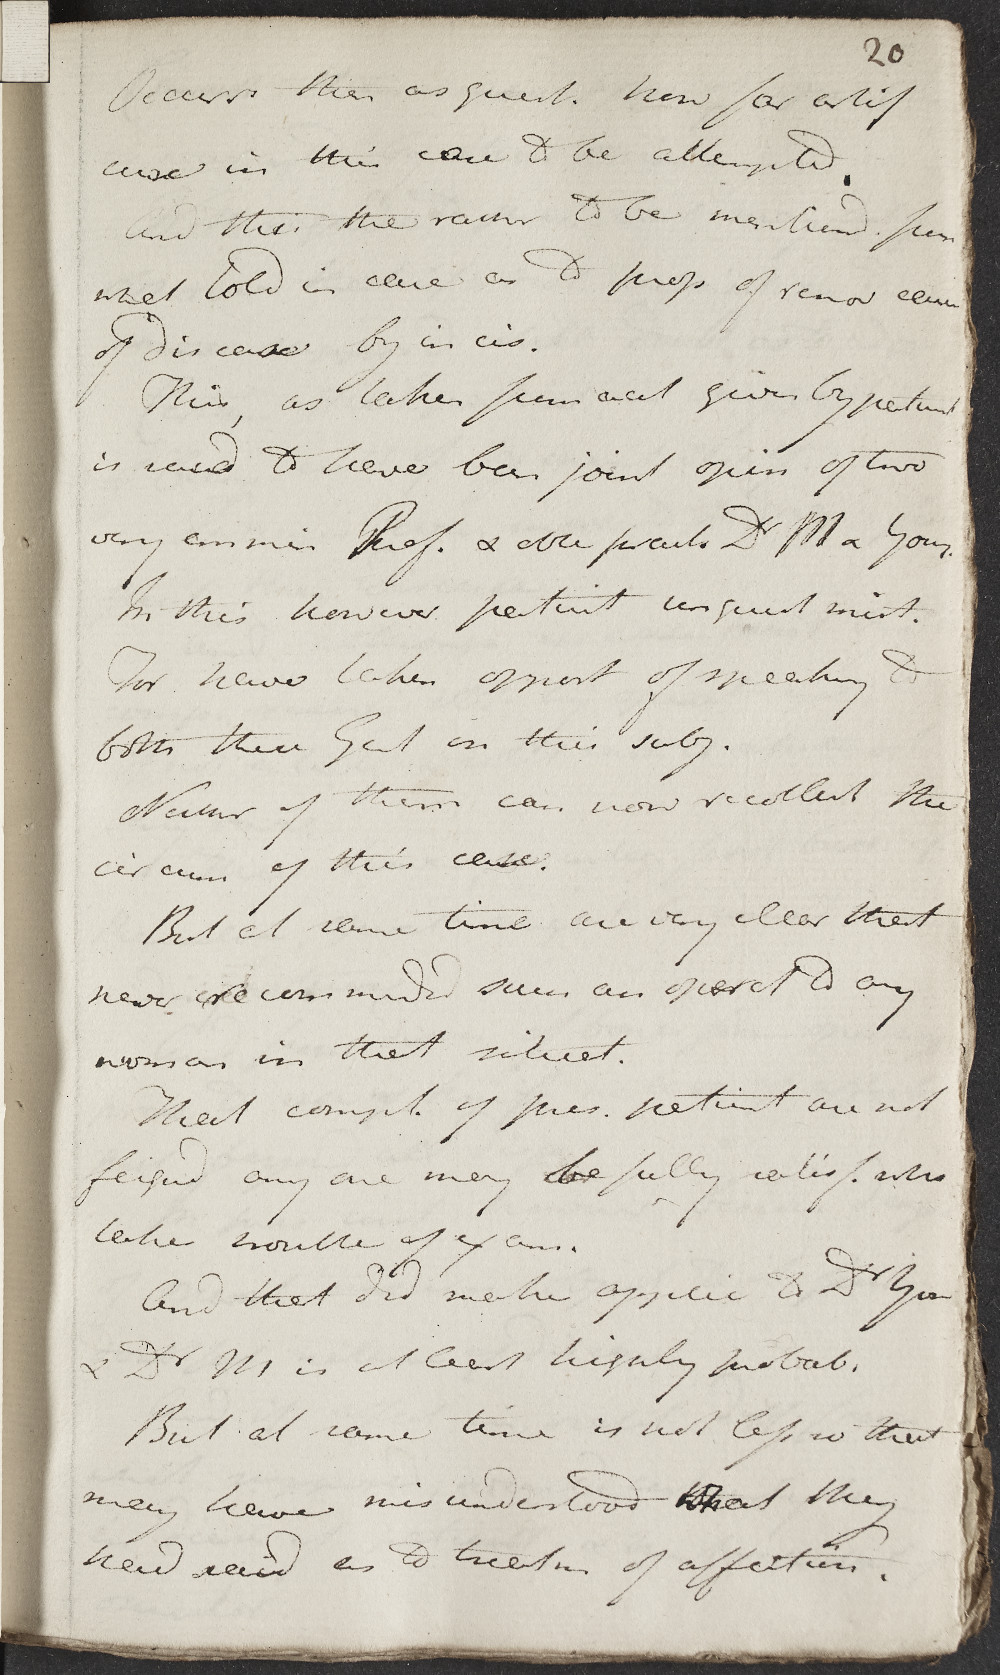 20
Occurrs then as quest. how far artif
cure in this case to be attempted.
And this the rather to be mentiond. from
what told in case as to prop of remov cause
of disease by incis.
This, as taken from acct given by patient
is said to have been joint opin of two
very eminen Prof. & able pract. Dr M & Young.
In this however patient unquest mist.
For have taken opport of speaking to
both these Gent on this subj.
Neither of them can now recollect the
circum of this case.
But at same time are very clear that
never recommended such an operat to any
woman in that situat.
That compl. of pres. patient are not
feignd any one may be fully satisf. who
take trouble of exam.
And that did make applic to Dr Youn
& Dr M is at least highly probab.
But at same time is not less so that
may have misunderstood what they
had said as to treatm of affection.